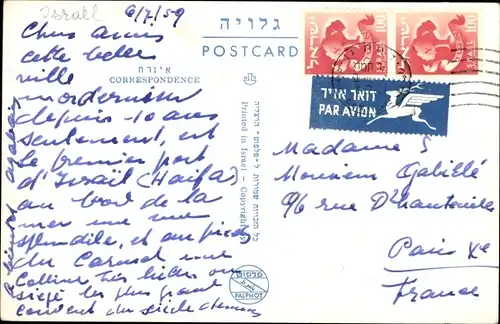 Israël
6/7/59
גלויה
POSTCARD
אינרת
CORRESPONDENCE
Chers amis
cette belle
ville
modernisée
depuis 10 ans
seulement, est
le premier port
d'Israël (Haïfa)
au bord de la
mer une vue
splendide, et au pied
du Carmel une
Colline très belle ou
siège le plus grand
couvent du
à bientôt
Printed in Israel - Copyright
כל הזכויות שמורות ל-פלפוט" הרצליה
פלפוט
PALPHOT
ישראל 100 ISRAEL
ישראל 100 ISRAEL
דואר אויר
PAR AVION
Madame &
Monsieur Gabiélé
96 rue D'hauteville
Paris Xe
France